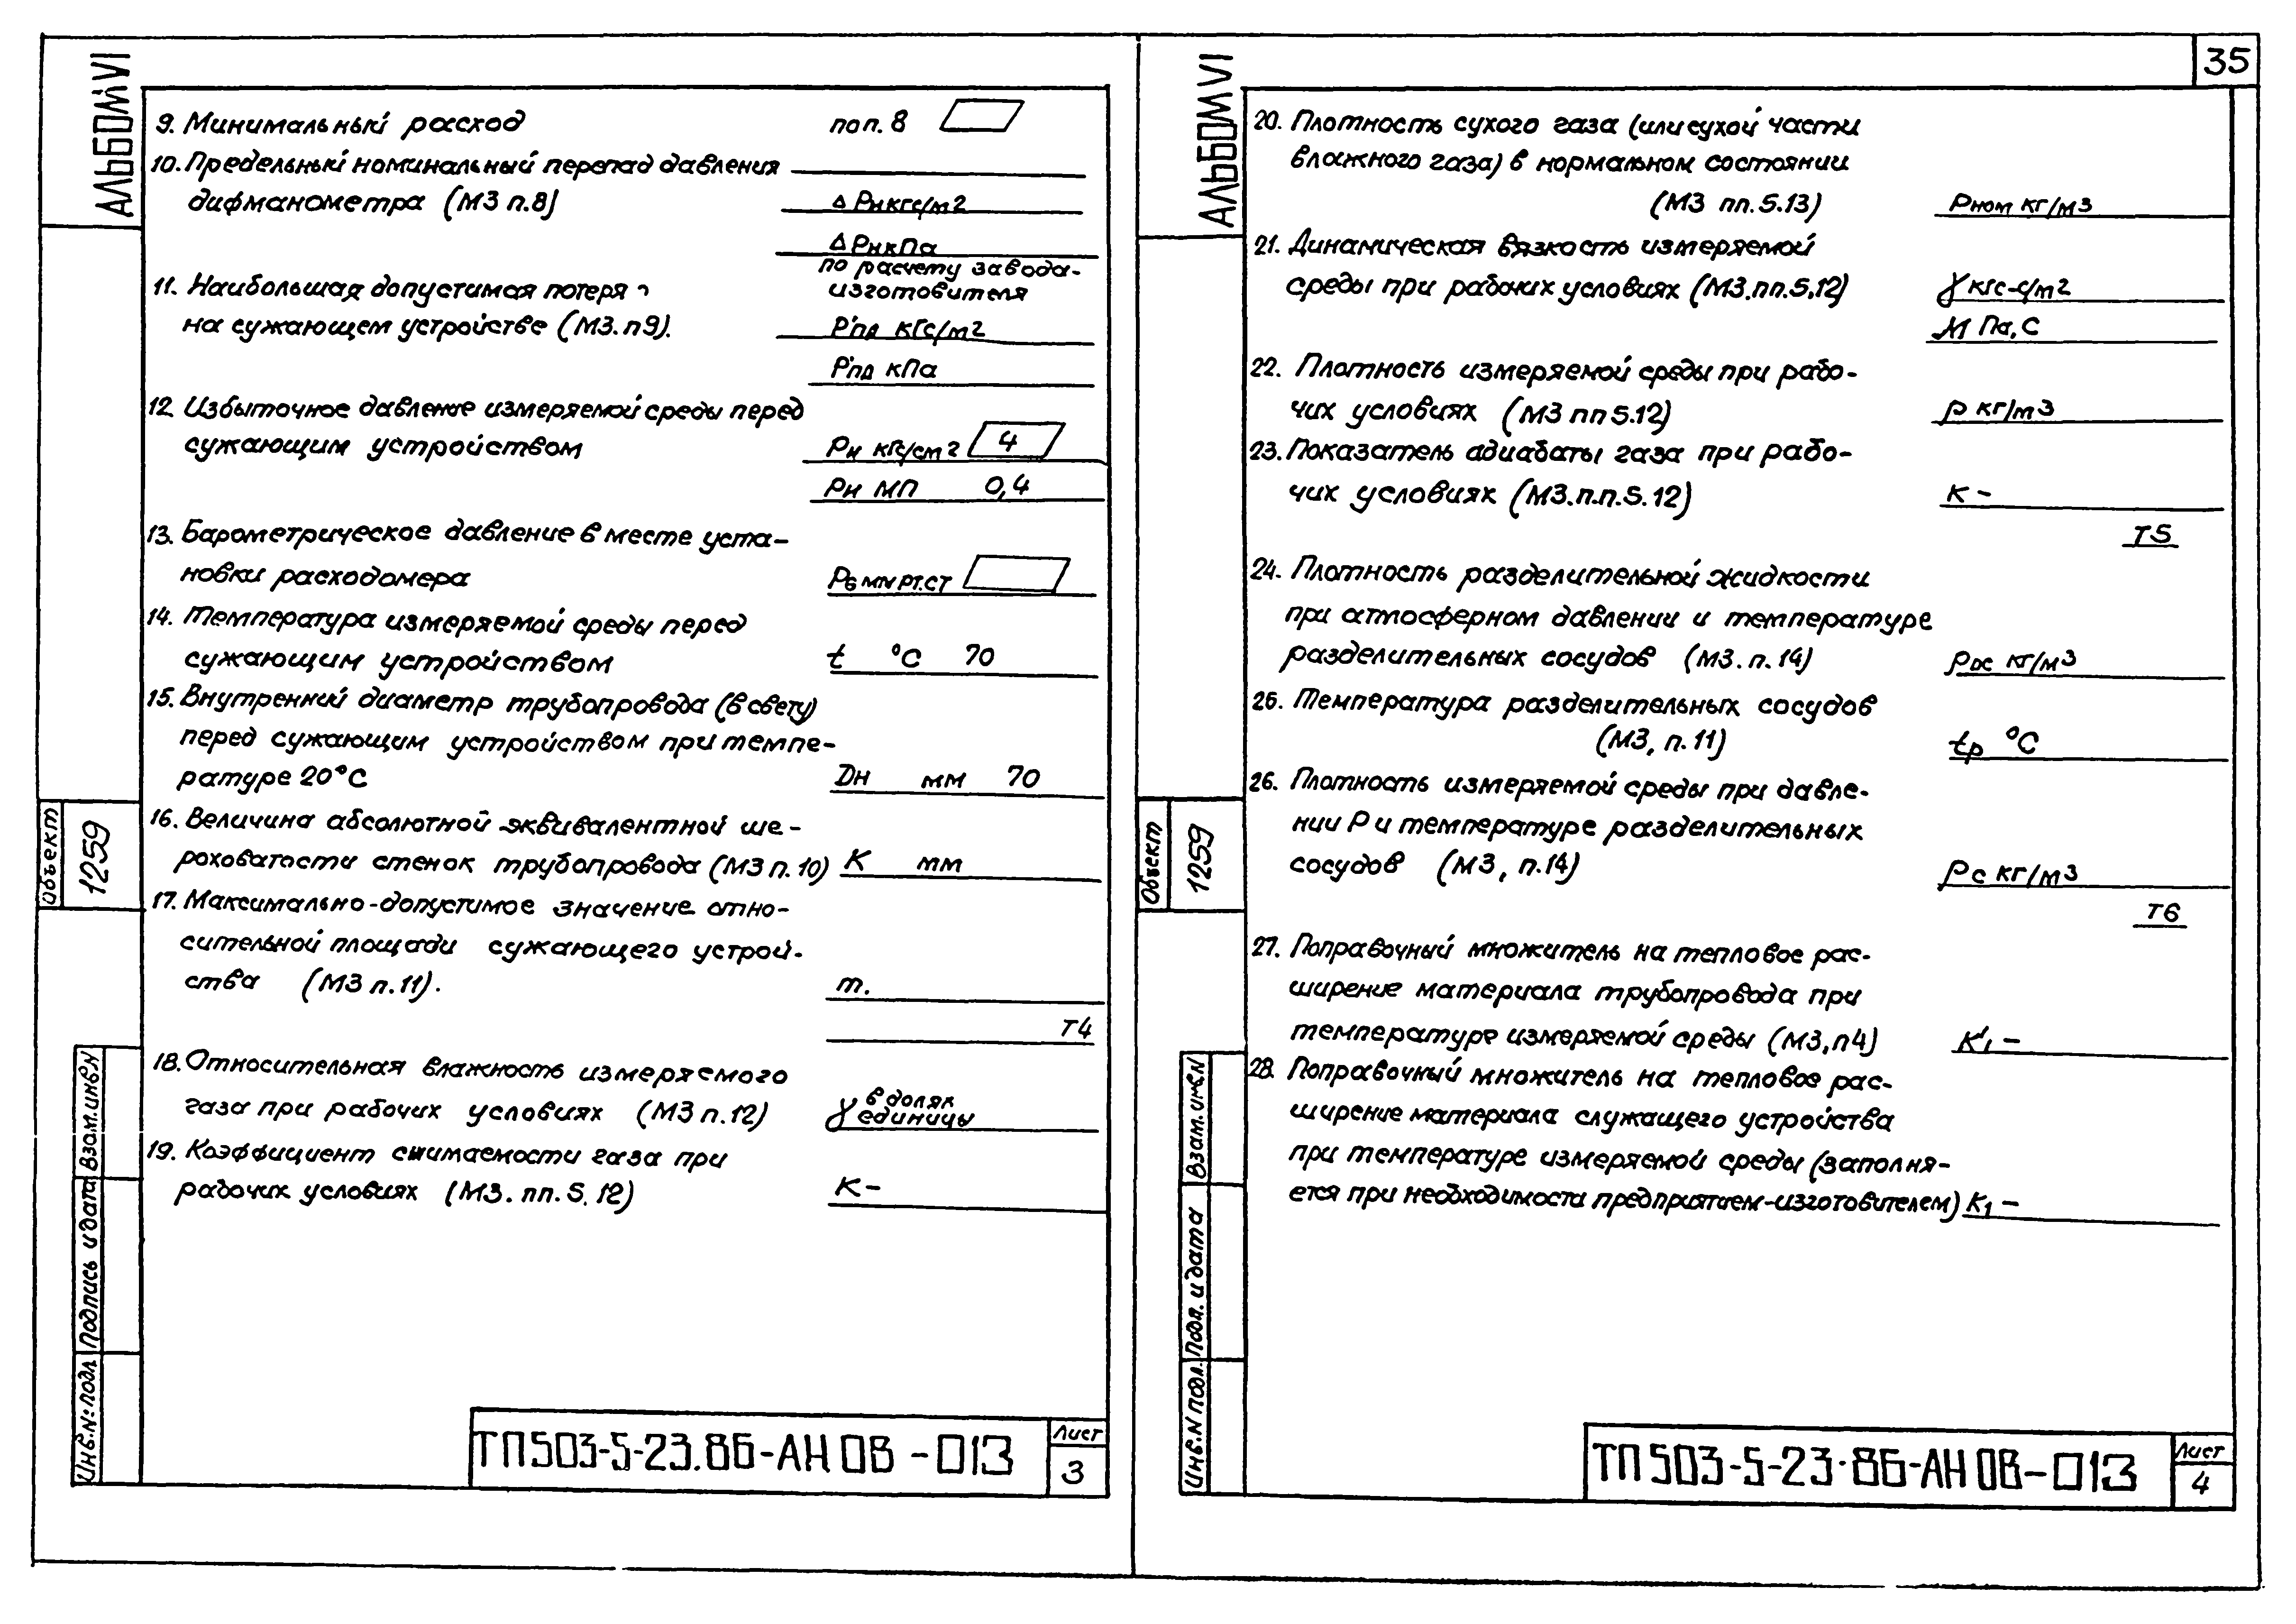 35
АЛЬБОМ VI
9. Минимальный расход по п. 8
10. Предельный номинальный перепад давления
дифманометра (МЗ п.8) Δ Рн кгс/м2
Δ Рн кПа
11. Наибольшая допустимая потеря
на сужающем устройстве (МЗ. п9).
по расчету завода-
изготовителя
Р'пд кгс/м2
Р'пд кПа
12. Избыточное давление измеряемой среды перед
сужающим устройством Ри кгс/см2 4
Ри МП 0,4
13. Барометрическое давление в месте уста-
новки расходомера Рб мм рт.ст
14. Температура измеряемой среды перед
сужающим устройством t °С 70
15. Внутренний диаметр трубопровода (в свету)
перед сужающим устройством при темпе-
ратуре 20°С Dн мм 70
16. Величина абсолютной эквивалентной ше-
роховатости стенок трубопровода (МЗ п. 10) К мм
17. Максимально-допустимое значение отно-
сительной площади сужающего устрой-
ства (МЗ п. 11). m.
Т4
18. Относительная влажность измеряемого
газа при рабочих условиях (МЗ п. 12) γ в долях
единицы
19. Коэффициент сжимаемости газа при
рабочих условиях (МЗ. пп. 5. 12) К-
Объект
1259
Инв.N: подл Подпись и дата Взам.инв.N
ТП 503-5-23.86-АН ОВ-013
Лист
3
АЛЬБОМ VI
20. Плотность сухого газа (или сухой части
влажного газа) в нормальном состоянии
(МЗ пп. 5.13) ρном кг/м3
21. Динамическая вязкость измеряемой
среды при рабочих условиях (МЗ. пп. 5.12) γ кгс-с/м2
М Па, С
22. Плотность измеряемой среды при рабо-
чих условиях (МЗ пп 5.12) ρ кг/м3
23. Показатель адиабаты газа при рабо-
чих условиях (МЗ. п.п. 5. 12) к -
Т5
24. Плотность разделительной жидкости
при атмосферном давлении и температуре
разделительных сосудов (МЗ. п. 14) ρрс кг/м3
25. Температура разделительных сосудов
(МЗ, п. 11) tр °С
26. Плотность измеряемой среды при давле-
нии Р и температуре разделительных
сосудов (МЗ, п.14) ρс кг/м3
Т6
27. Поправочный множитель на тепловое рас-
ширение материала трубопровода при
температуре измеряемой среды (МЗ, п4) К'1 -
28. Поправочный множитель на тепловое рас-
ширение материала служащего устройства
при температуре измеряемой среды (заполня-
ется при необходимоста предприятием-изготовителем) К1 -
Объект
1259
Инв.N подл. Подп. и дата Взам. инв.N
ТП 503-5-23.86-АН ОВ-013
Лист
4